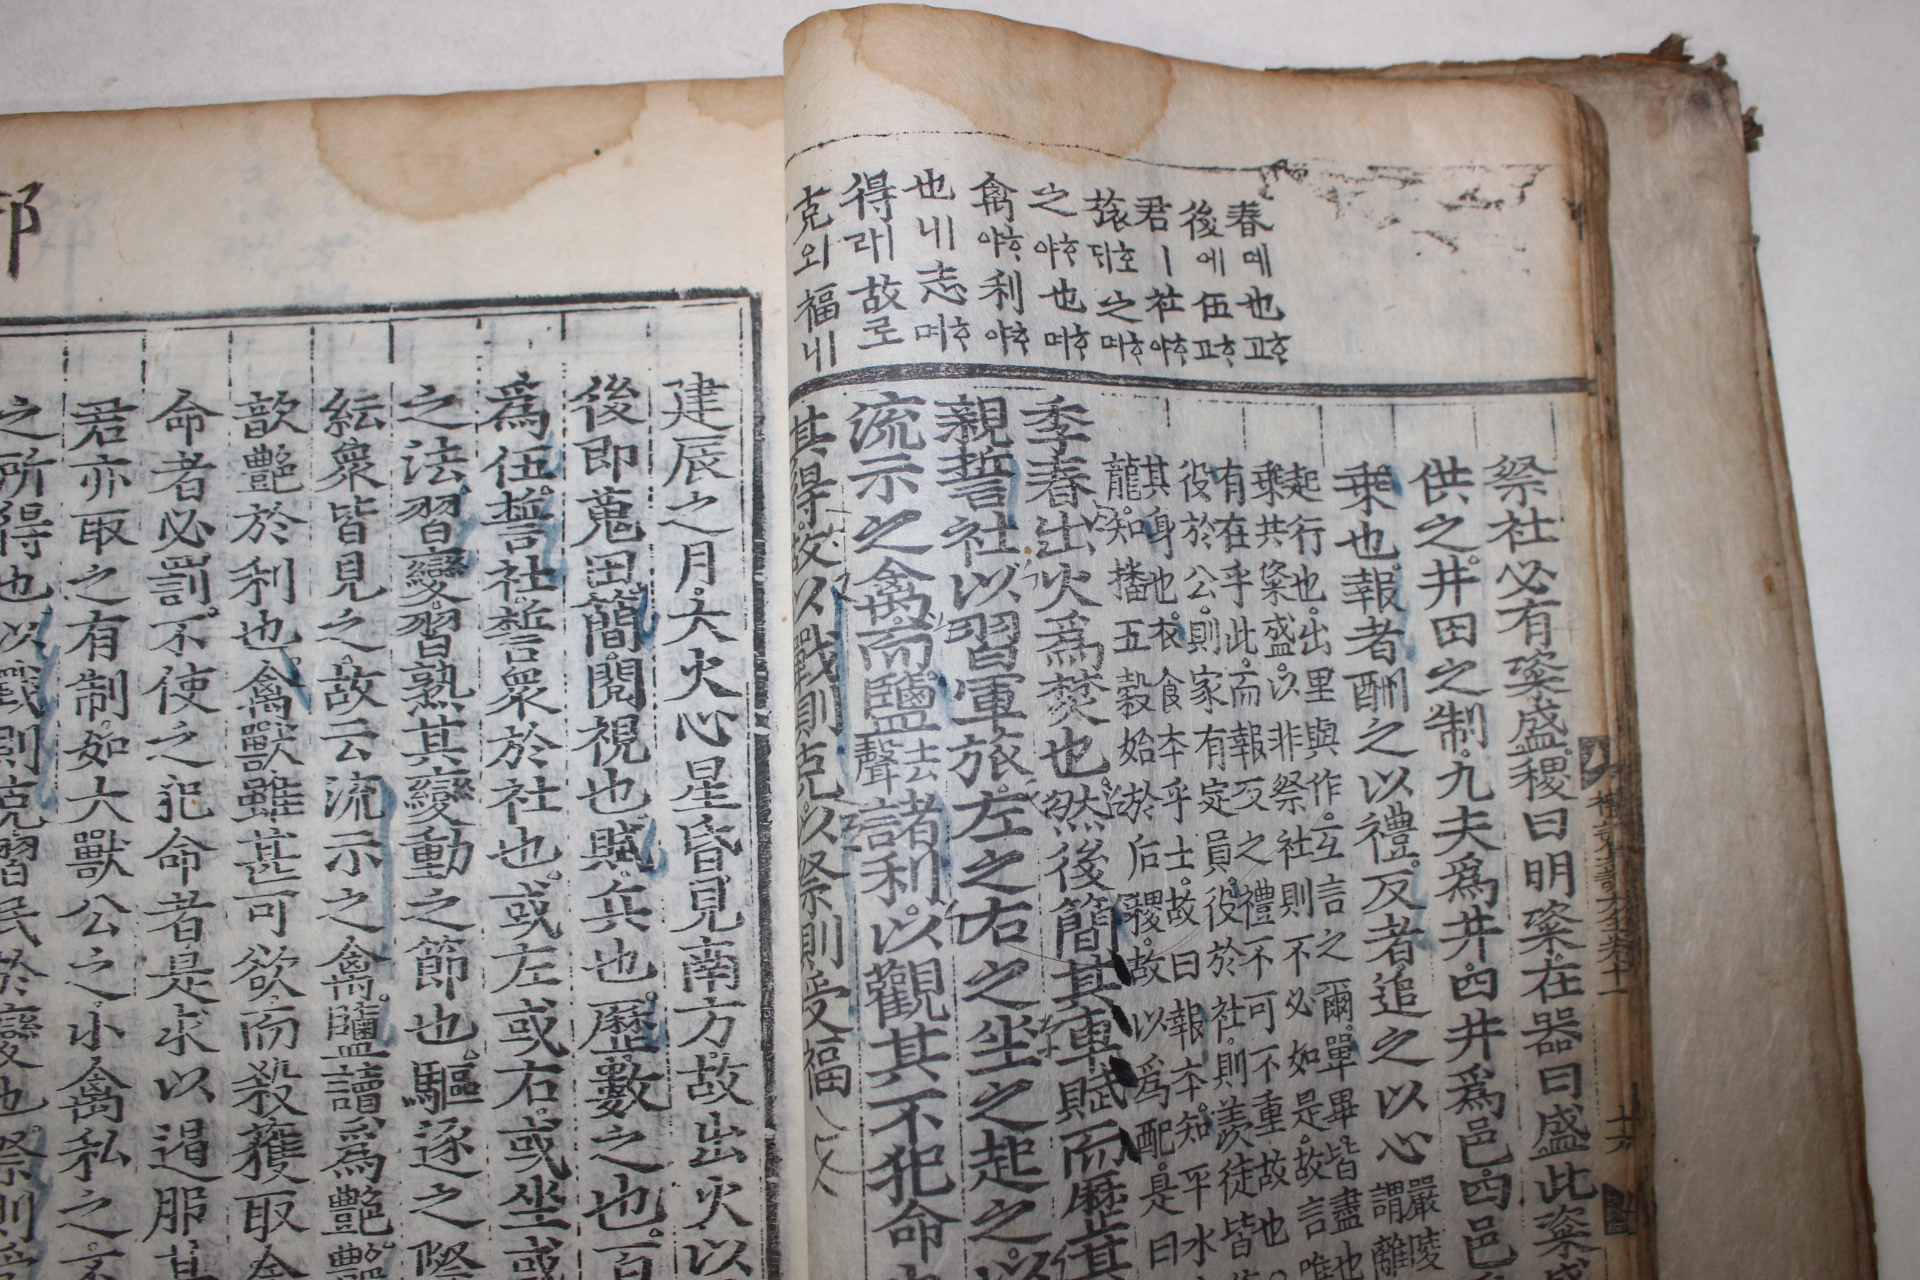 春ㅣ데也ᄒᆞ고
後에伍ᄒᆞ고
君ㅣ社ᄒᆞ야
旅호ᄃᆡ之ᄒᆞ며
之ᄒᆞ야也ᄒᆞ며
禽ᄒᆞ야利ᄒᆞ야
也ㅣ니志ᄒᆞ며
得라ㅣ故로
克外福니
祭社必有粢盛稷曰明粢在器曰盛此粢盛
供之井田之制九夫爲井四井爲邑四邑
乗也報者酬之以禮反者追之以心
嚴陵
謂離
起行也出里與作互言之爾單畢皆盡也
乗共粢盛以非祭社則不必如是故言唯
有在乎此而報反之禮不可不重故也
役於公則家有定員役於社則羨徒皆
其身也衣食本乎土故曰報本知平水
龍知播五穀始於后稷故以爲配是曰
季春出火爲焚也然後簡其車賦而歷其
親誓社以習軍旅左之右之坐之起之以
流示之禽而鹽去聲諸利以觀其不犯命
其得故以戰則克以祭則受福
建辰之月大火心星昏見南方故出火以
後即蒐田簡閱視也賦兵也歷數之也百
爲伍誓社誓衆於社也或左或右或坐或
之法習變習熟其變動之節也驅逐之際
紜衆皆見之故云流示之禽鹽讀爲艷艷
歆艶於利也禽獸雖甚可欲而殺獲取舍
命者必罰不使之犯命者是求以遏服其
君亦取之有制如大獸公之小禽私之不
之所得也以戰則克習民於變也祭則受